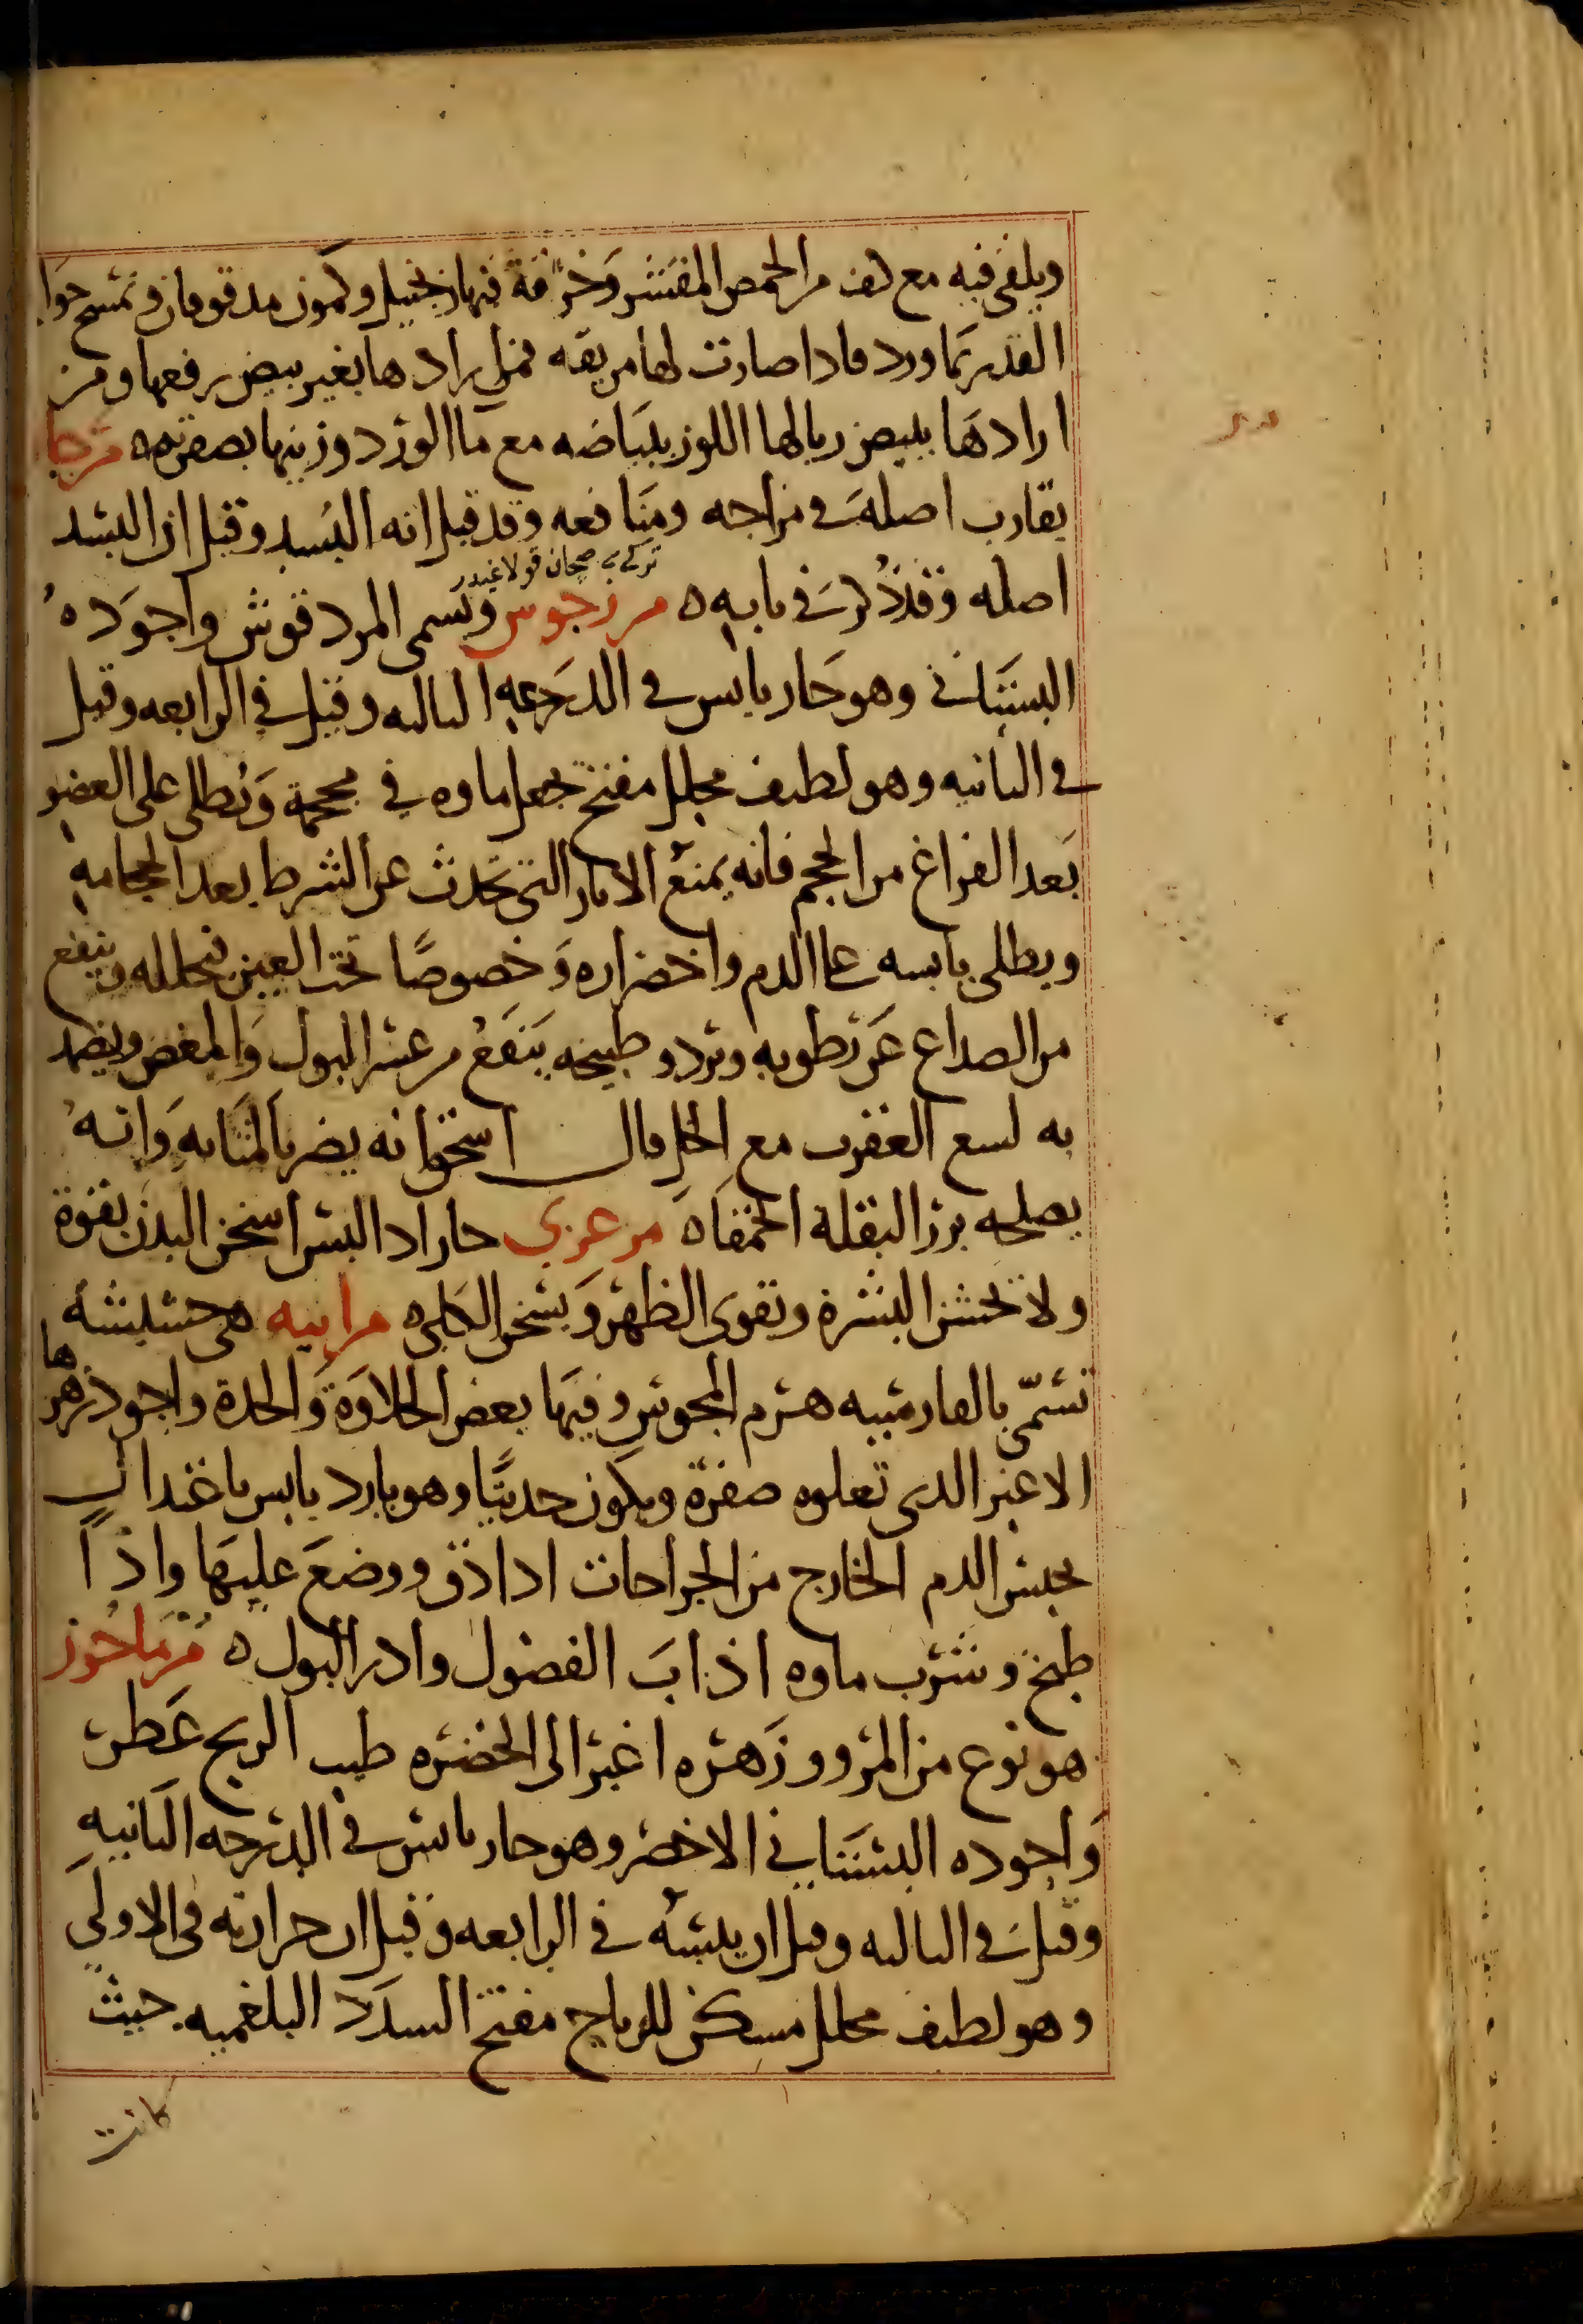 ويلقى فيه مع كف من الحمص المقشر وخرقة فيها زنجبيل وكمون مدقوقان وتمسح جوا
القدر بما ورد فاذا صارت لها مريقه فمن ارادها بغير بيض رفعها ومن
ارادها ببيض ربا لها اللوز ببياضه مع ما الورد وزينها بصفرته ه مرجا
يقارب اصله في مزاجه ومنافعه وقد قيل انه البسد وقيل ان البسد
تركي به صچان قولاغيدر
اصله وقد ذكر في بابه ه مرزجوس ويسمى المردقوش واجوده
البستاني وهو حار يابس في الدرجه الثالثه وقيل في الرابعه وقيل
في الثانيه وهو لطيف محلل مفتح يجعل ماوه في محجمة ويطلى على العضو
بعد الفراغ من الحجم فانه يمنع الاثار التي تحدث عن الشرط بعد الحجامه
ويطلى يابسه على الدم واخضراره وخصوصا تحت العين فيحلله وينفع
من الصداع عن رطوبه وبرد وطبيخه ينفع من عسر البول والمغص ويضمد
به لسع العقرب مع الخل قال اسحق انه يضر بالمثانه وانه
يصلحه بزر البقلة الحمقاه مرعزي حار اذا لبس اسخن البدن بقوة
ولا تخشن البشرة وتقوى الظهر ويسخن الكلى ه مرانيه هي حشيشه
تسمى بالفارسيه هزم المجوس وفيها بعض الحلاوة والحدة واجود زهرها
الاغبر الدى تعلوه صفرة ويكون حديثا وهو بارد يابس باعتدال
يحبس الدم الخارج من الجراحات اذا دق ووضع عليها واذا
طبخ وشرب ماوه اذاب الفضول وادر البول ه مرماحوز
هو نوع من المرو وزهره اغبر الى الخضره طيب الريح عطر
واجوده البستاني الاخضر وهو حار يابس في الدرجه الثانيه
وقيل في الثالثه وقيل ان يبسه في الرابعه وقيل ان حرارته في الاولى
وهو لطيف محلل مسكن للرياح مفتح السدد البلغميه حيث
كانت